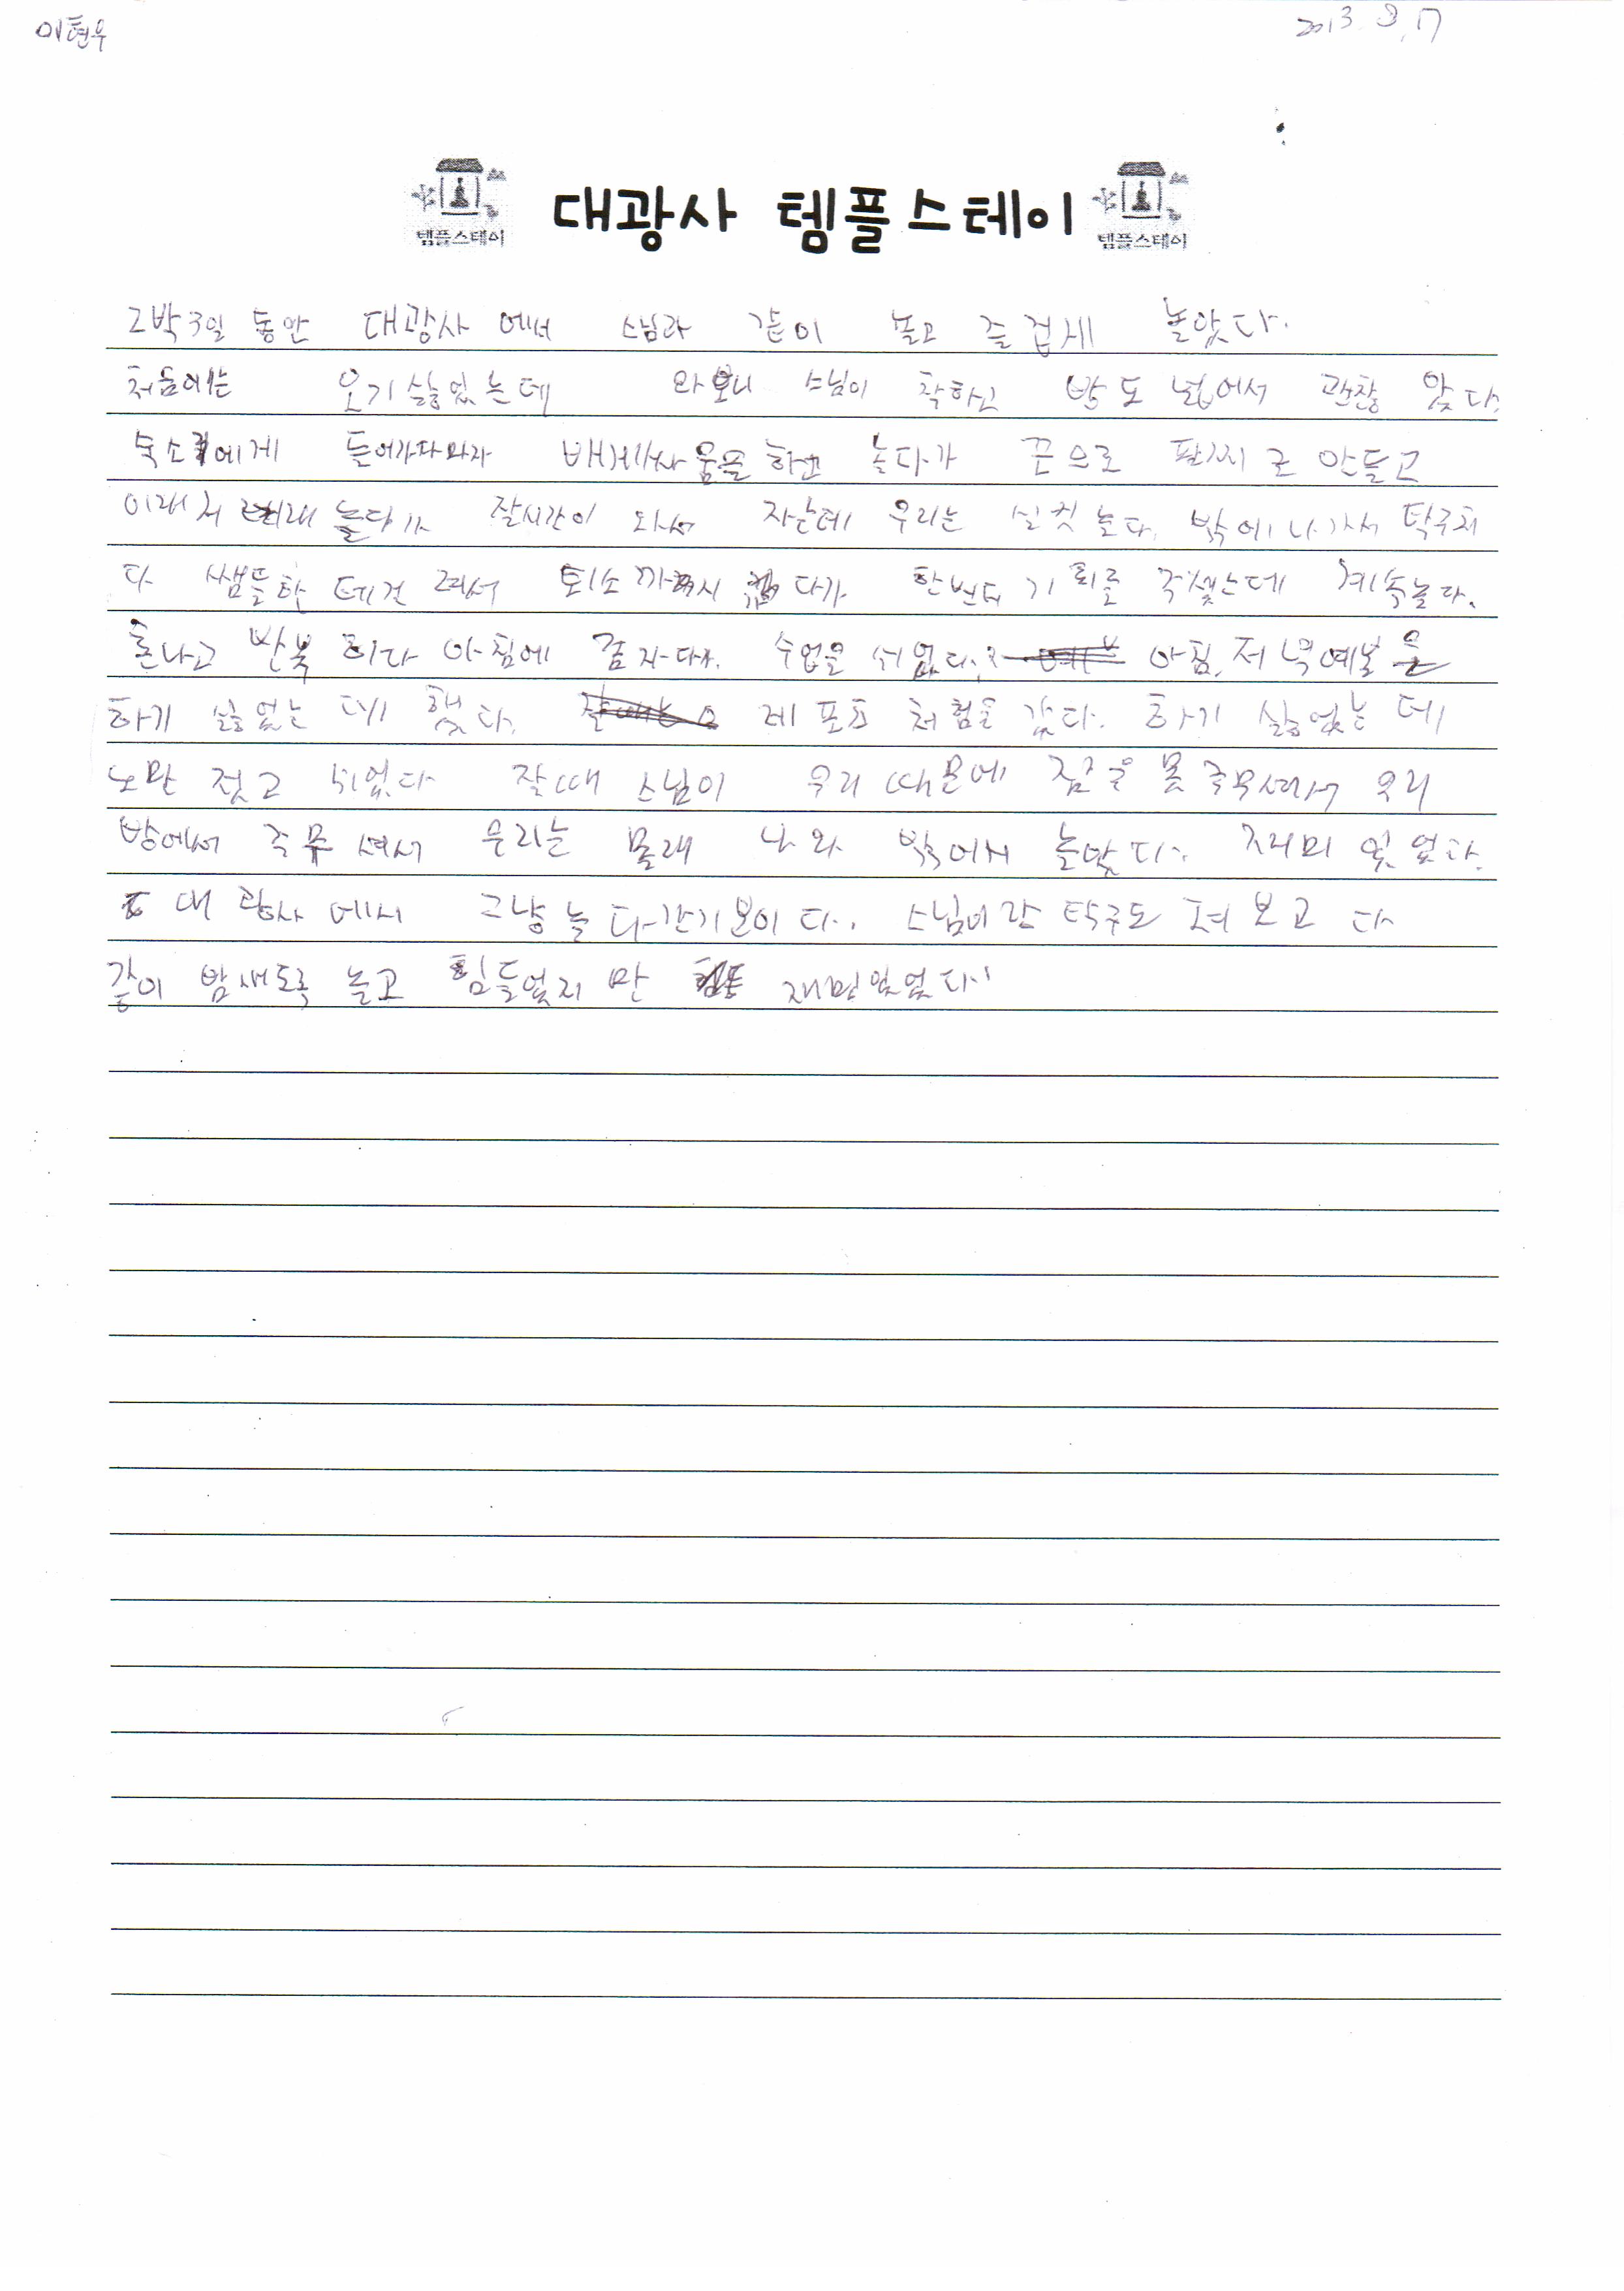 이현우
2013. 8. 17
대광사 템플스테이
템플스테이
템플스테이
2박3일 동안 대광사 에서 스님과 같이 놀고 즐겁게 놀았다.
처음에는 오기싫었는데 와보니 스님이 착하고 밥도 넓어서 괜찮 았다.
숙소에게 들어가자마자 배게싸움을 하고 놀다가 끈으로 팔찌로 안들고
이래저래 놀다가 잘시간이 와서 자는데 우리는 실컷 놀다. 밖에 나가서 탁구치
다 쌤들한 테걸려서 퇴소 까지 다가 한번더 기회를 주셨는데 계속놀다.
혼나고 반복 하다 아침에 잠자다. 수업을 쉬었다. 아침, 저녁예불을
하기 싫었는 데 했다. 레포츠 체험을 갔다. 하기 싫었는 데
노만 젓고 쉬었다 잘때 스님이 우리 때문에 잠을 못 주무셔서 우리
방에서 주무 셔서 우리는 몰래 나와 밖에서 놀았다. 재미 있었다.
대광사 에서 그냥 놀다간기분이다. 스님이랑 탁구도 쳐 보고 다
같이 밤새도록 놀고 힘들었지 만 재밌있었다.